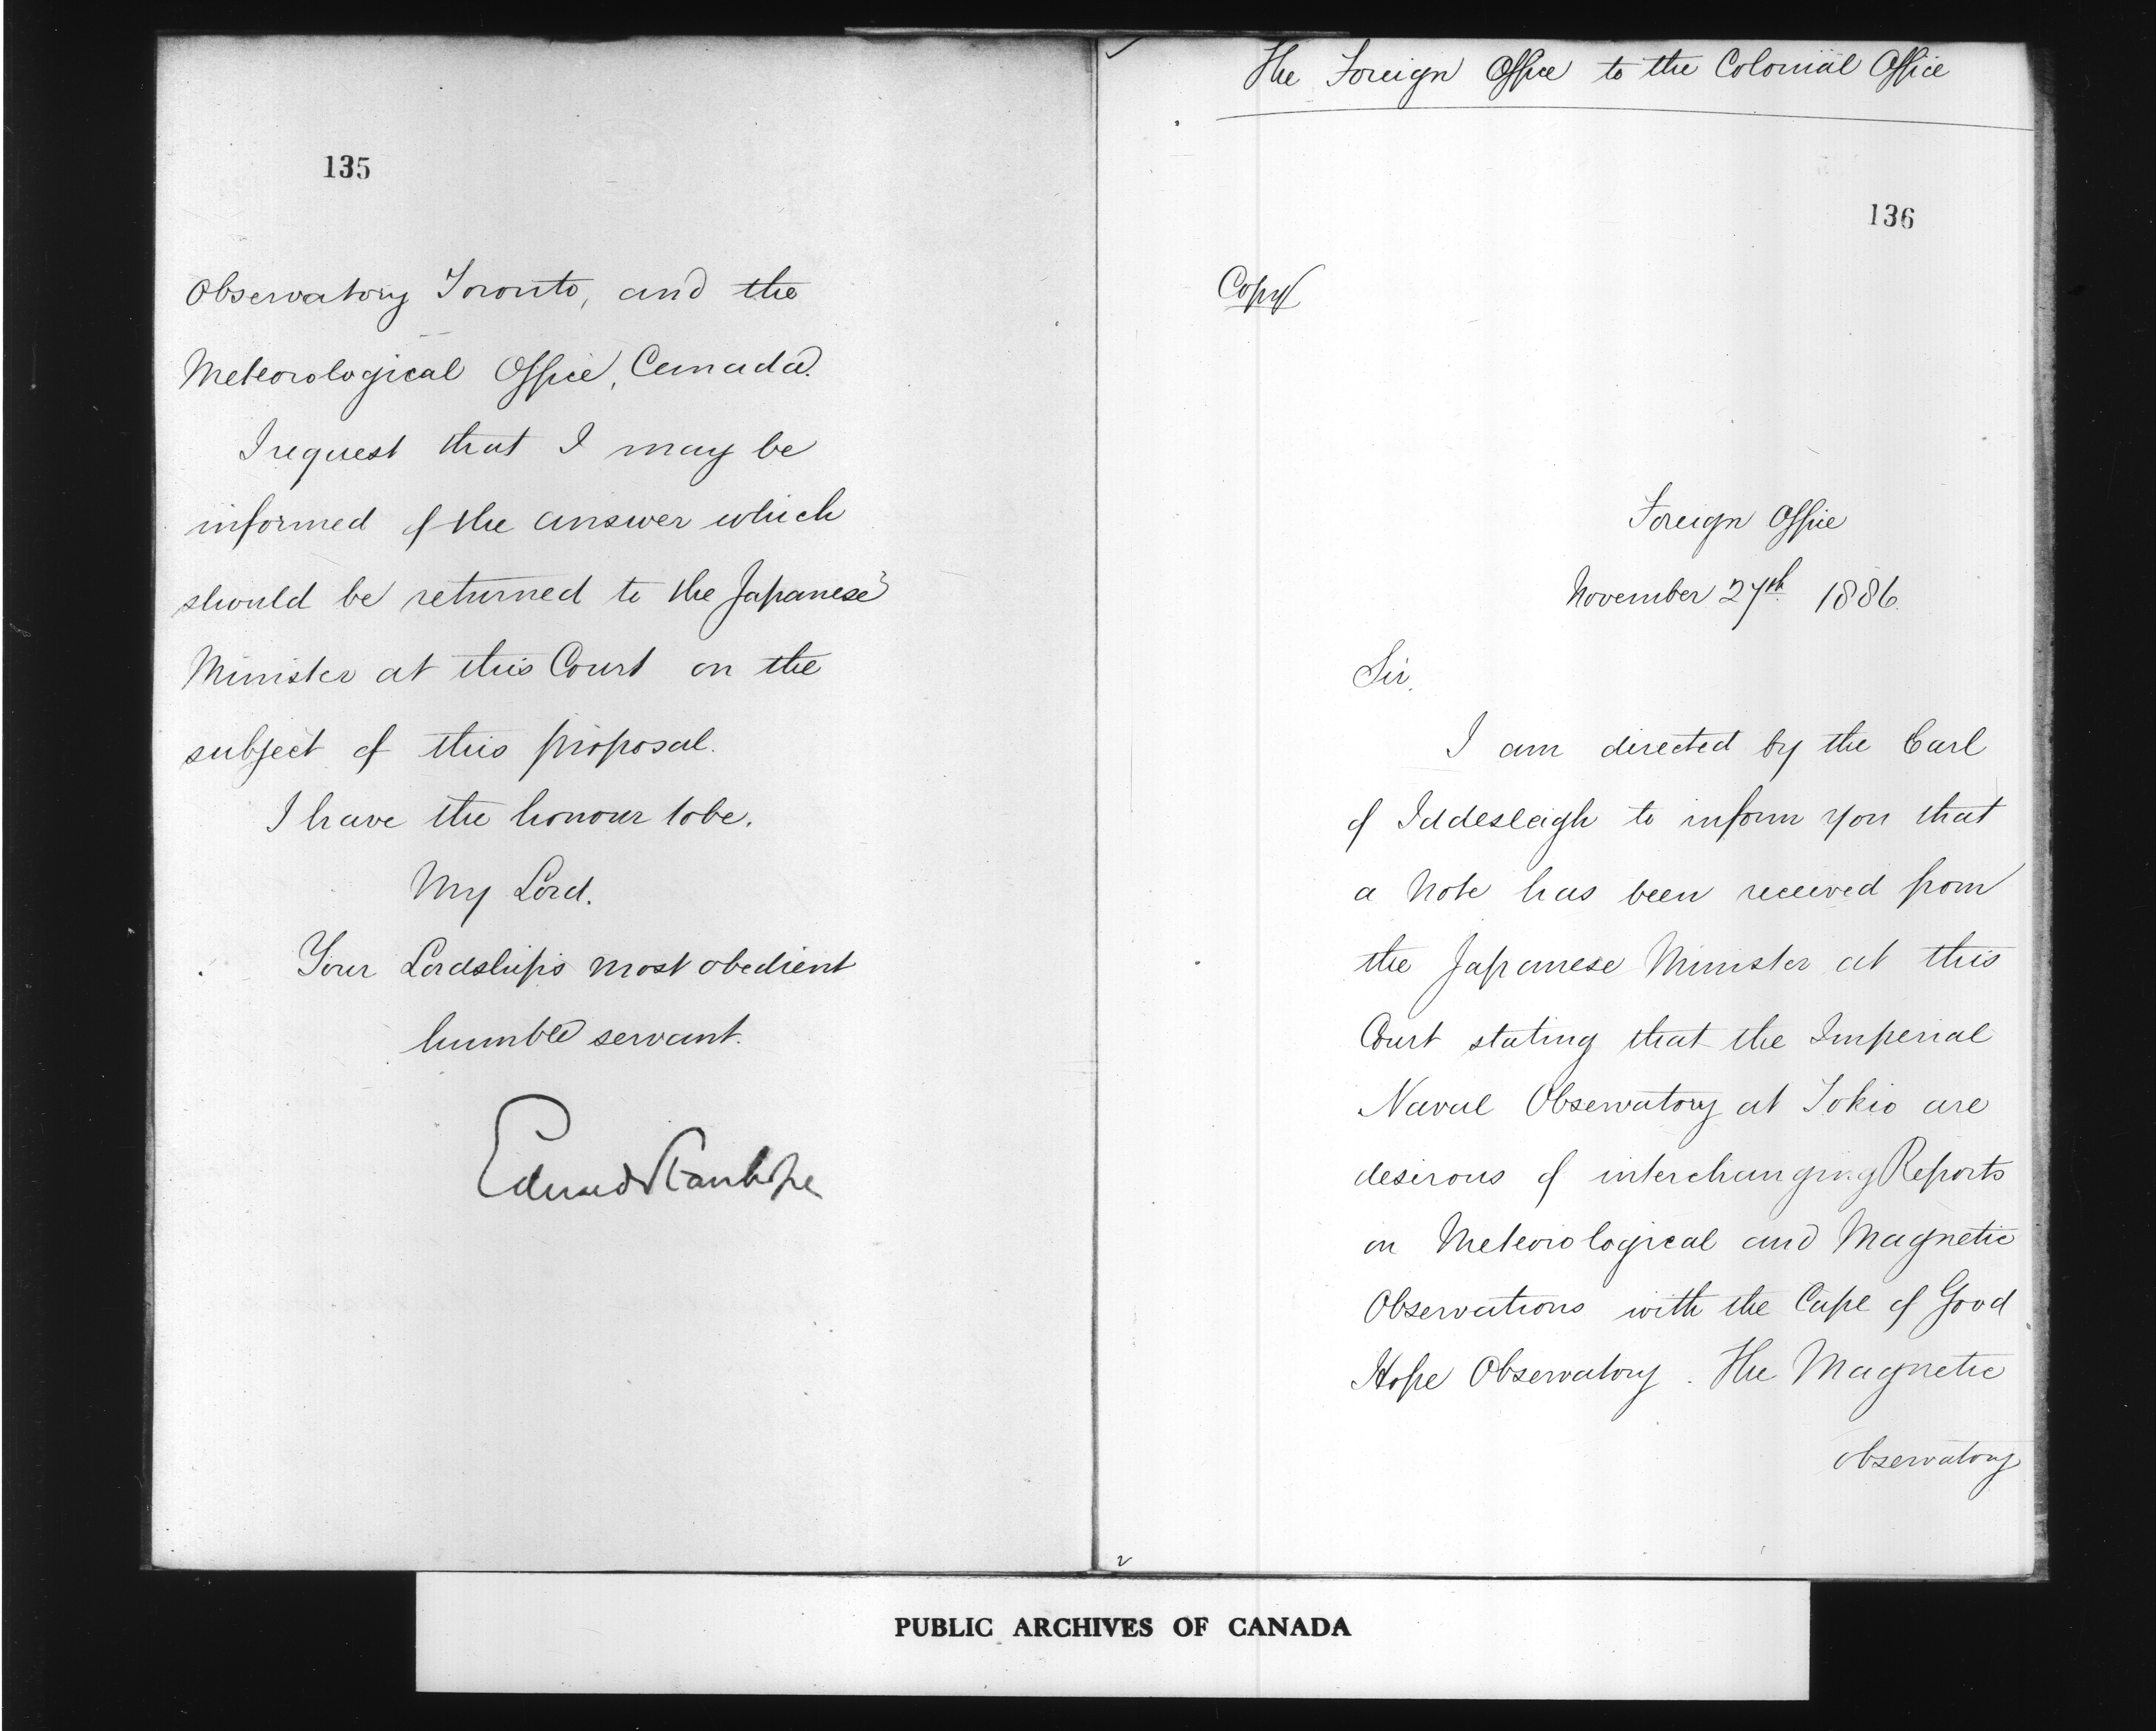 135
Observatory Toronto, and the
Meteorological Office, Canada.
I request that I may be
informed of the answer which
should be returned to the Japanese
Minister at this Court on the
subject of this proposal.
I have the honour to be.
My Lord.
Your Lordships most obedient
humble servant.
Edward Stanhope
The Foreign Office to the Colonial Office
136
Copy
Foreign Office
November 27th 1886.
Sir,
I am directed by the Earl
of Iddesleigh to inform you that
a Note has been received from
the Japanese Minister at this
Court stating that the Imperial
Naval Observatory at Tokio are
desirous of interchanging Reports
on Meteorological and Magnetic
Observations with the Cape of Good
Hope Observatory. The Magnetic
observatory
PUBLIC ARCHIVES OF CANADA